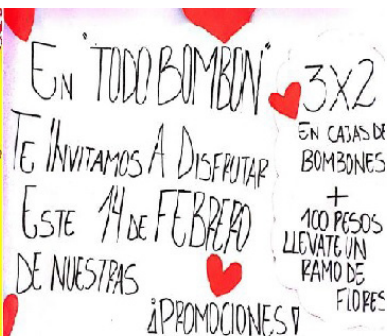 EN "TODO BOMBON"
TE INVITAMOS A DISFRUTAR
ESTE 14 DE FEBRERO
DE NUESTRAS
¡PROMOCIONES!
3X2
EN CAJAS DE
BOMBONES
+
100 PESOS
LLEVATE UN
RAMO DE
FLORES